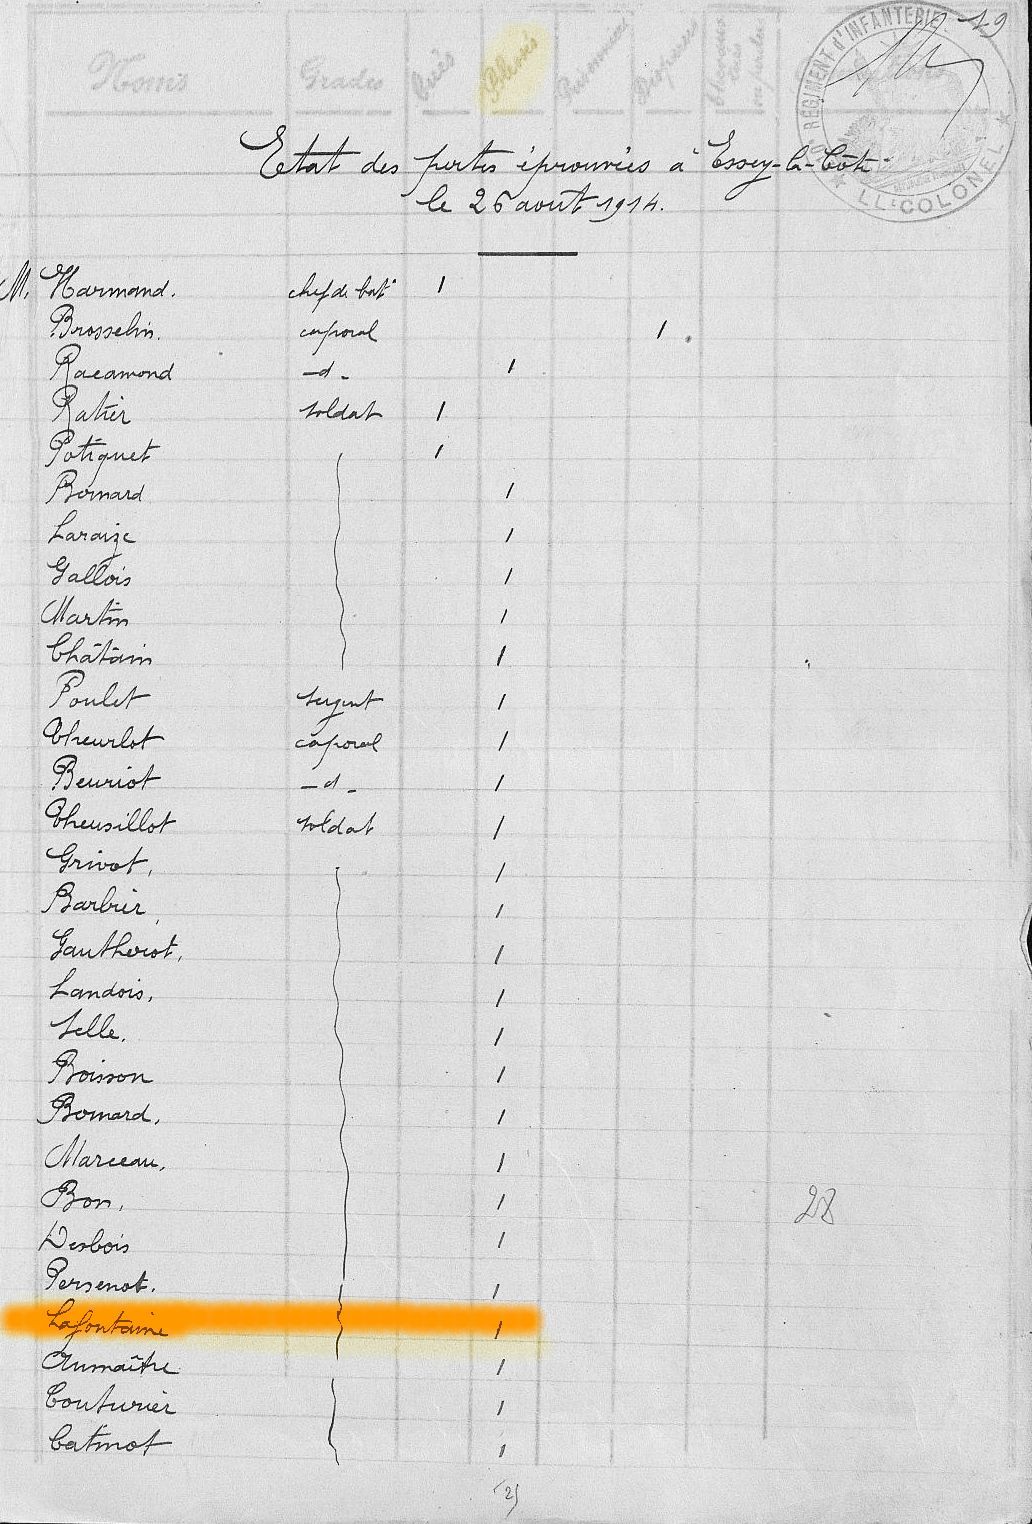 19
Noms Grades Tués Blessés Prisonniers Disparus
RÉGIMENT d'INFANTERIE
LT COLONEL
Etat des pertes éprouvées à Essey-la-Côte
le 26 août 1914.
M. Marmand. chef de bat. 1
Brosselin. caporal 1
Racamond -d- 1
Ratier soldat 1
Potiquet 1
Bomard 1
Laraize 1
Gallois 1
Martin 1
Châtain 1
Poulet sergent 1
Theurlot caporal 1
Beuriot -d- 1
Theusillot soldat 1
Grivot, 1
Barbier, 1
Gautherot, 1
Landois, 1
Selle. 1
Boisson 1
Bomard, 1
Marceau, 1
Bon, 1
28
Desbois 1
Persenot. 1
Lafontaine 1
Aumaître 1
Couturier 1
Catinot 1
(2)